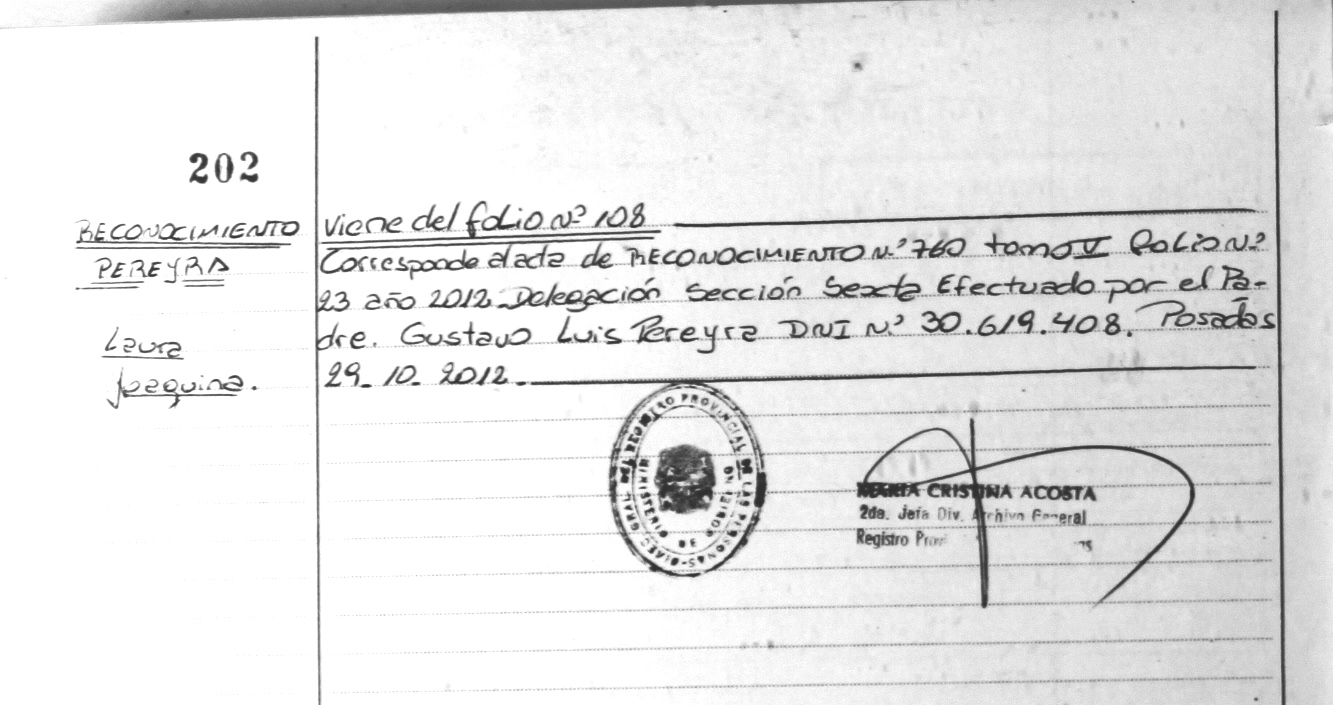 202
RECONOCIMIENTO
PEREYRA
Laura
Joaquina.
Viene del folio Nº 108
Corresponde al acta de RECONOCIMIENTO Nº 760 tomo V Folio Nº
23 año 2012. Delegación Sección Sexta Efectuado por el Pa-
dre. Gustavo Luis Pereyra DNI Nº 30.619.408. Posadas
29. 10. 2012.
DIREC. GRAL. DEL REGISTRO PROVINCIAL DE LAS PERSONAS
MINISTERIO DE GOBIERNO
MARIA CRISTINA ACOSTA
2da. Jefa Div. Archivo General
Registro